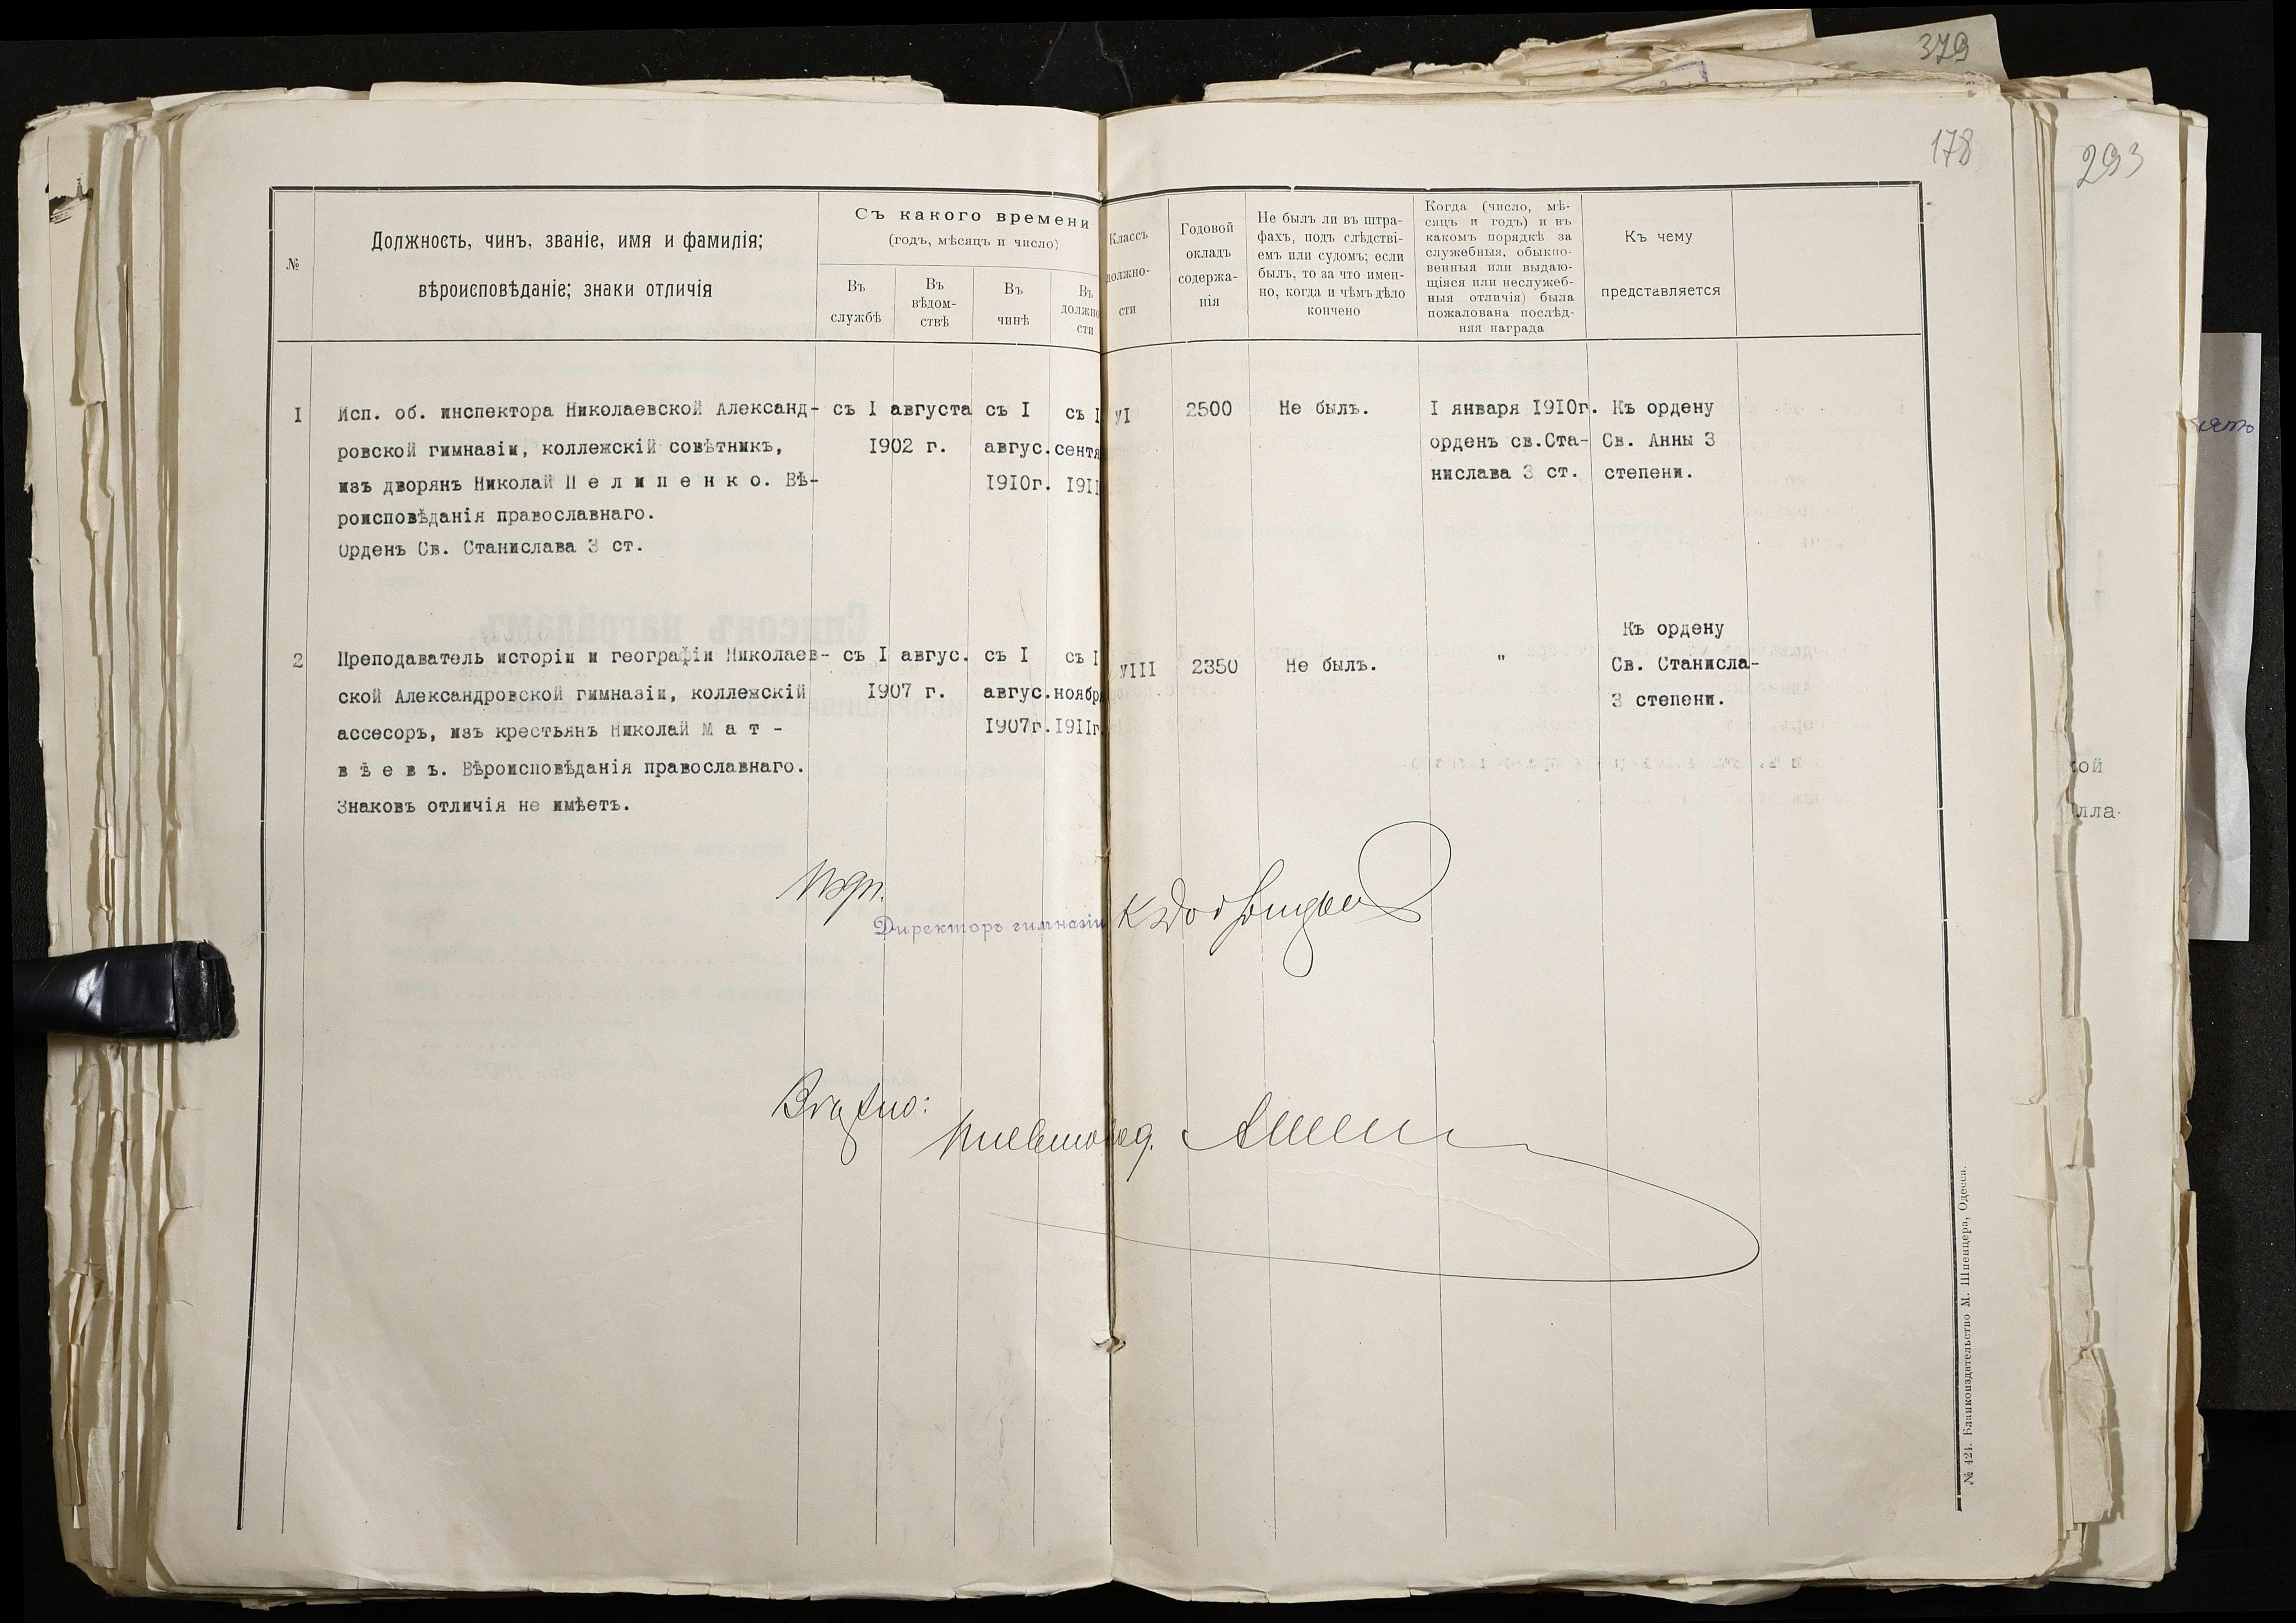 379
178
293
№
Должность, чинъ, званіе, имя и фамилія;
вѣроисповѣданіе; знаки отличія
Съ какого времени
(годъ, мѣсяцъ и число)
Въ
службѣ
Въ
вѣдом-
ствѣ
Въ
чинѣ
Въ
должно
сти
Классъ
должно-
сти
Годовой
окладъ
содержа-
нія
Не былъ ли въ штра-
фахъ, подъ слѣдстві-
емъ или судомъ; если
былъ, то за что имен-
но, когда и чѣмъ дѣло
кончено
Когда (число, мѣ-
сяцъ и годъ) и въ
какомъ порядкѣ за
служебныя, обыкно-
венныя или выдаю-
щіяся или неслужеб-
ныя отличія) была
пожалована послѣд-
няя награда
Къ чему
представляется
I
Исп. об. инспектора Николаевской Александ-
ровской гимназіи, коллежскій совѣтникъ,
изъ дворянъ Николай П е л и п е н к о. Вѣ-
роисповѣданія православнаго.
Орденъ Св. Станислава 3 ст.
съ I августа
1902 г.
съ I
авгус.
1910г.
съ I
сентя
1911
VI
2500
Не былъ.
I января 1910г.
орденъ св.Ста-
нислава 3 ст.
Къ ордену
Св. Анны 3
степени.
2
Преподаватель исторіи и географіи Николаев-
ской Александровской гимназіи, коллежскій
ассесоръ, изъ крестьянъ Николай М а т -
в ѣ е в ъ. Вѣроисповѣданія православнаго.
Знаковъ отличія не имѣетъ.
съ I авгус.
1907 г.
съ I
авгус.
1907г.
съ I
ноября
1911г
VIII
2350
Не былъ.
"
Къ ордену
Св. Станисла-
3 степени.
Директоръ гимназіи
кой
лла
№ 424. Бланкоиздательство М. Шпенцера, Одесса.